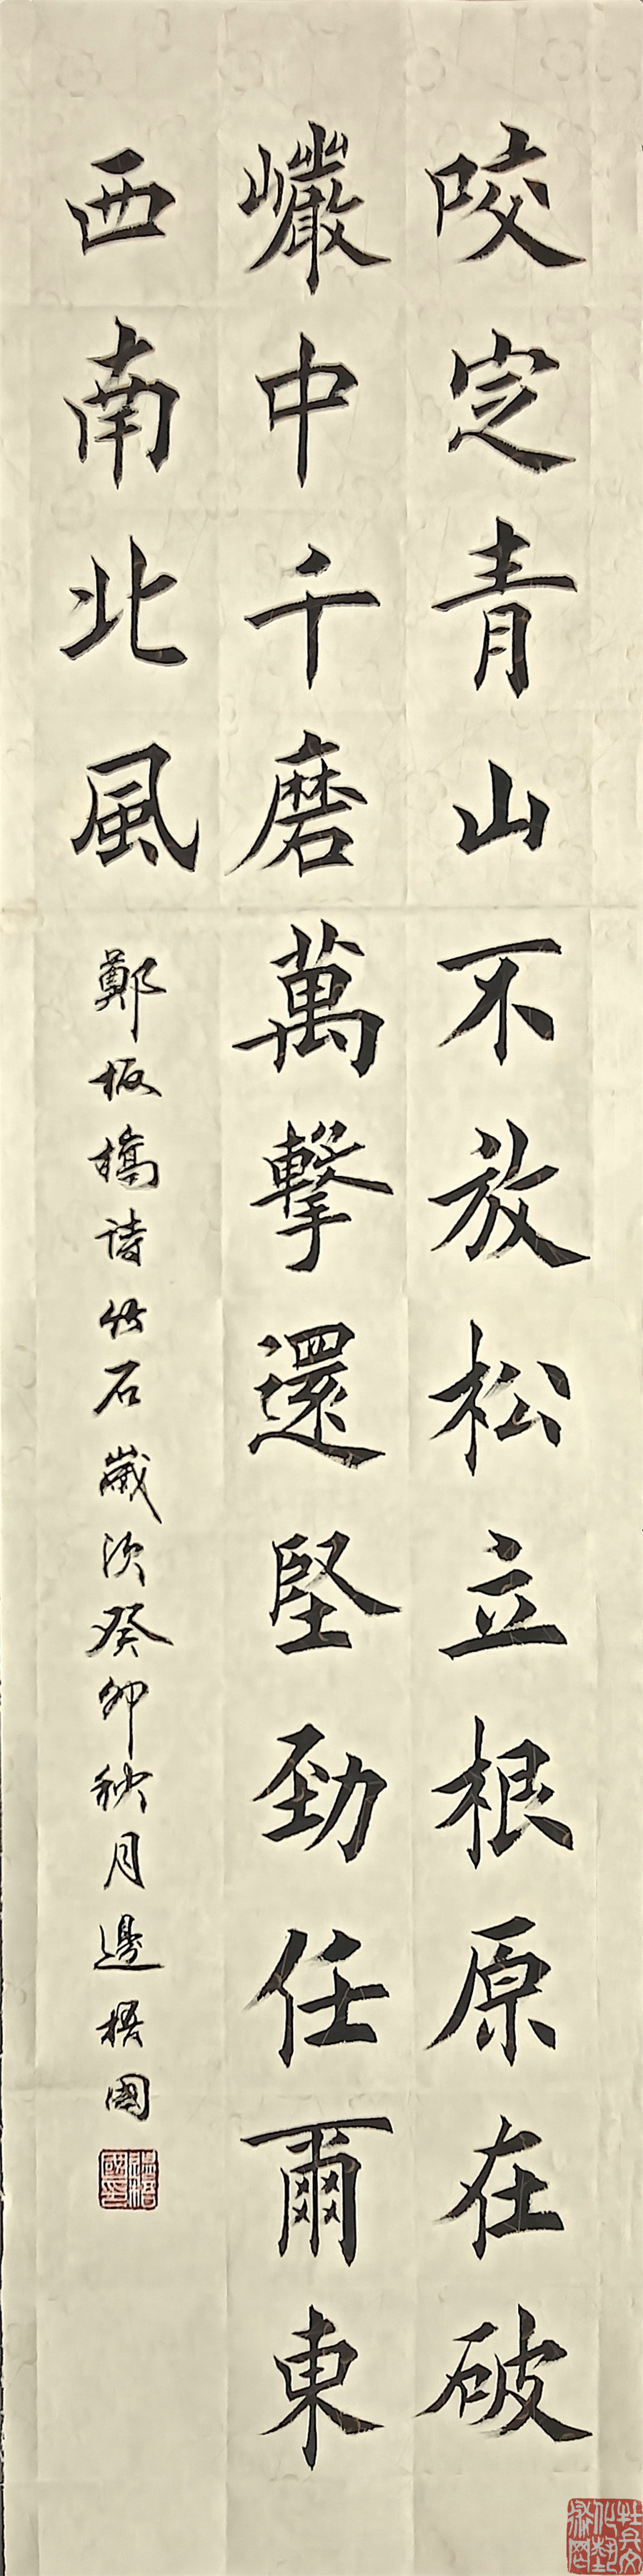 咬定青山不放松立根原在破
巗中千磨萬擊還堅勁任爾東
西南北風
鄭板橋詩竹石歲次癸卯秋月邊梧國